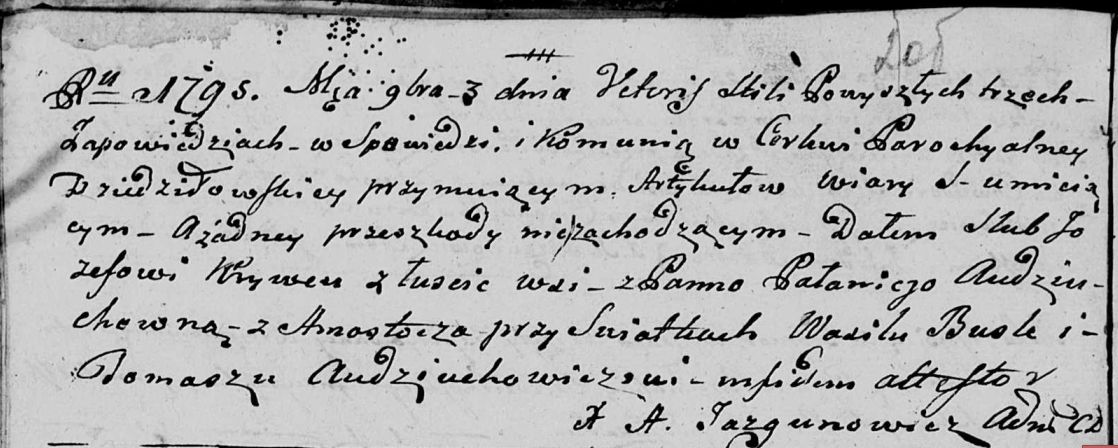 205
Ru 1795. Mca 9bra 3 dnia Veteris Stili Powyszłych trzech-
Zapowiedziach - w Spowiedzi, i Komunią w Cerkwi Parochyalney
Dziedziłowskiey przymuiącym. Artykułow wiary S- umieią
cym - A żadney przeszkody niezachodzącym - Dałem Slub Jo
zefowi Krywcu z łuscic wsi - z Panno Pałaniejo Audziu-
chowną - z Amostocza przy Swiatkach Wasilu Busle i -
Tomaszu Audziuchowiczowi - mpidem attestor
X A. Jazgunowicz Adm CD